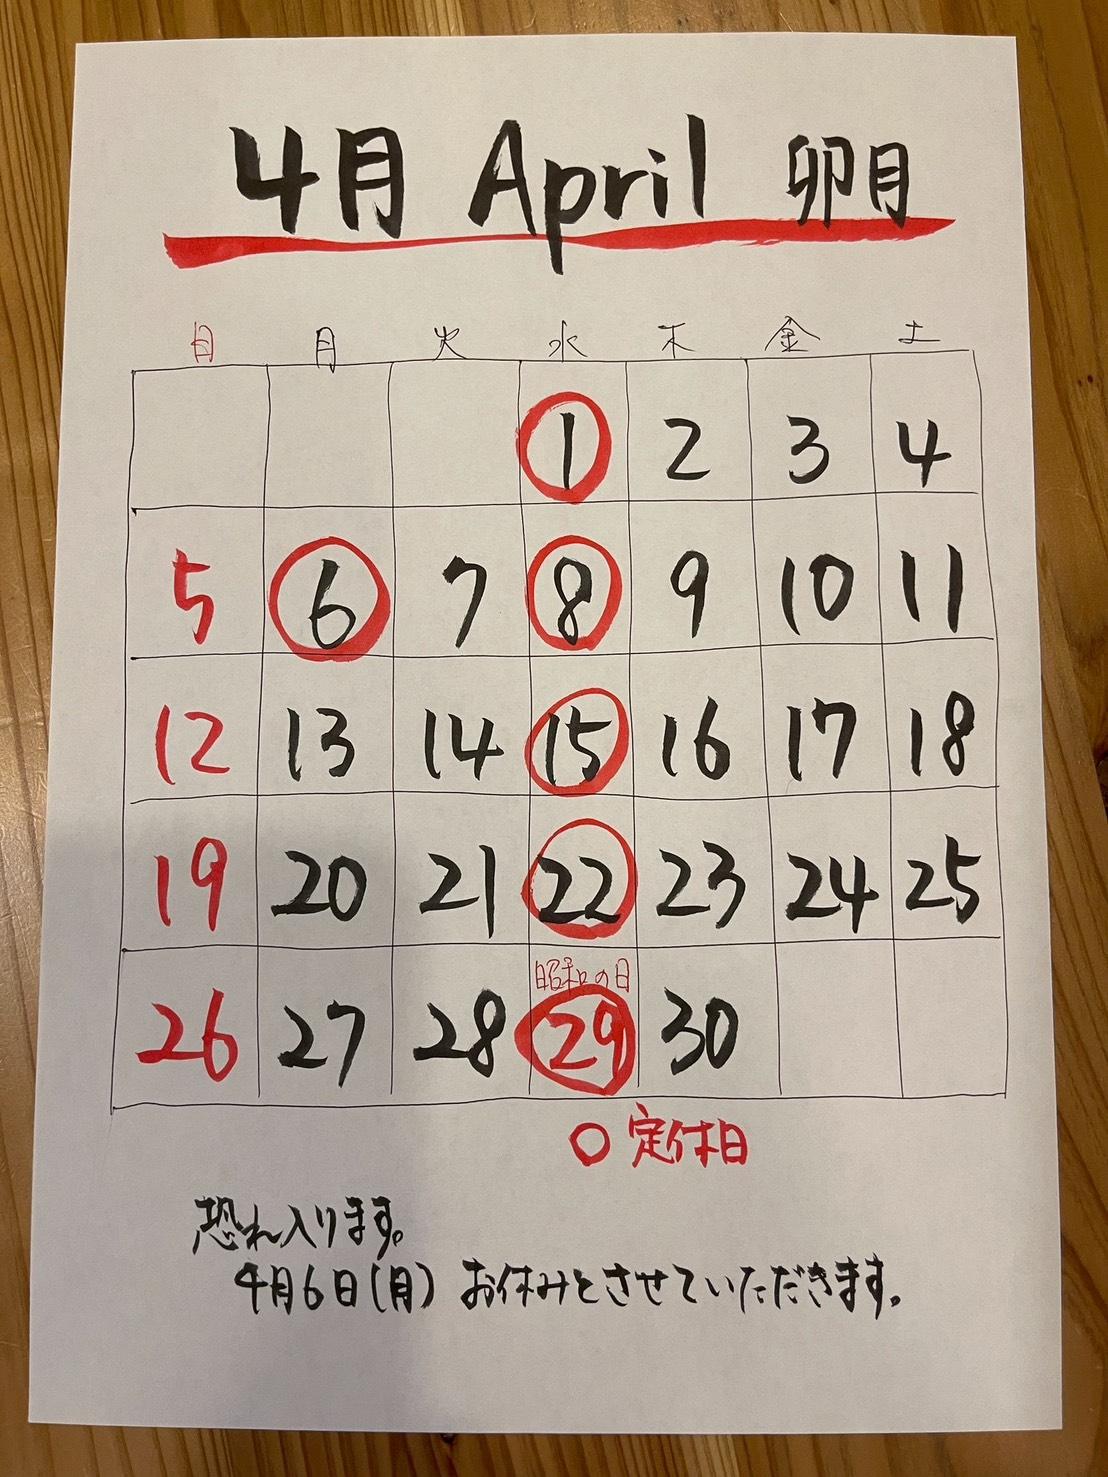 4月 April 卯月
日 月 火 水 木 金 土
1 2 3 4
5 6 7 8 9 10 11
12 13 14 15 16 17 18
19 20 21 22 23 24 25
昭和の日
26 27 28 29 30
○ 定休日
恐れ入ります。
4月6日(月) お休みとさせていただきます。